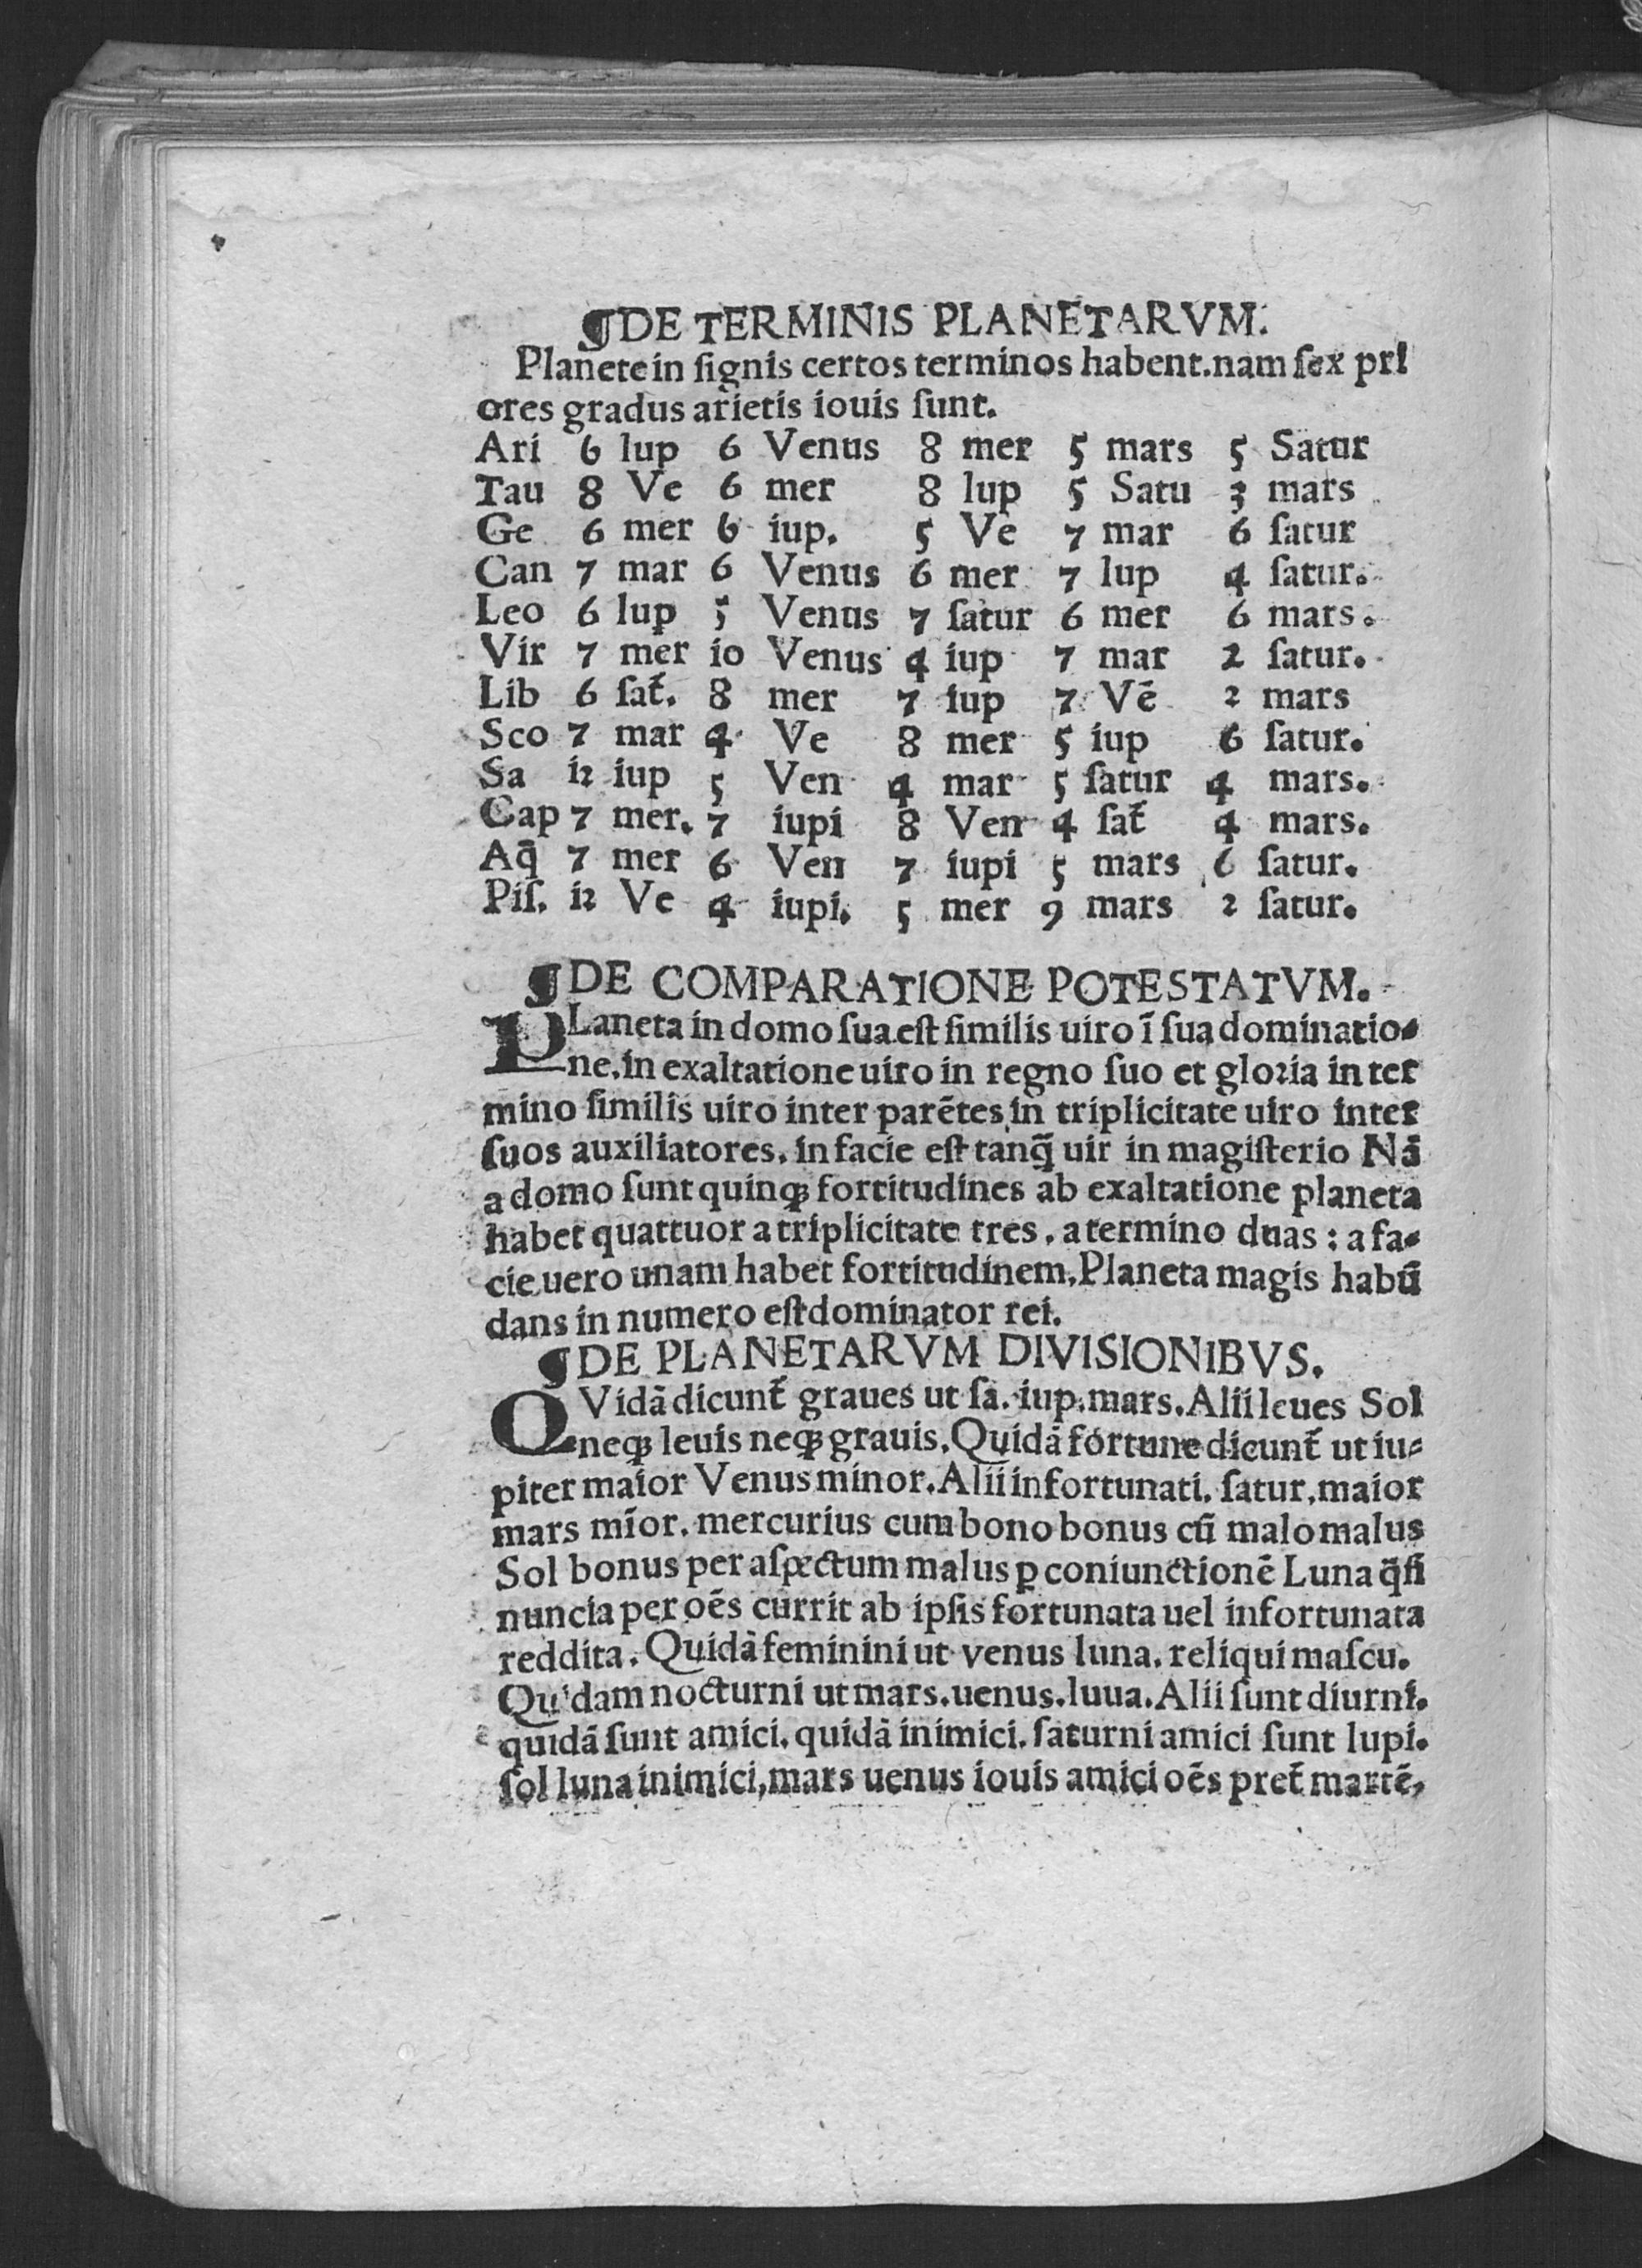 ¶DE TERMINIS PLANETARVM.
Planete in ſignis certos terminos habent.nam ſex pri
ores gradus arietis iouis ſunt.
Ari 6 Iup 6 Venus 8 mer 5 mars 5 Satur
Tau 8 Ve 6 mer 8 Iup 5 Satu 3 mars
Ge 6 mer 6 iup. 5 Ve 7 mar 6 ſatur
Can 7 mar 6 Venus 6 mer 7 Iup 4 ſatur.
Leo 6 Iup 5 Venus 7 ſatur 6 mer 6 mars.
Vir 7 mer io Venus 4 iup 7 mar 2 ſatur.
Lib 6 ſat̃. 8 mer 7 iup 7 Vē 2 mars
Sco 7 mar 4 Ve 8 mer 5 iup 6 ſatur.
Sa i2 iup 5 Ven 4 mar 5 ſatur 4 mars.
Cap 7 mer. 7 iupi 8 Ven 4 ſat̃ 4 mars.
Aq̄ 7 mer 6 Ven 7 iupi 5 mars 6 ſatur.
Piſ. i2 Ve 4 iupi. 5 mer 9 mars 2 ſatur.
¶DE COMPARATIONE POTESTATVM.
PLaneta in domo ſua eſt ſimilis uiro ī ſua dominatio-
ne.in exaltatione uiro in regno ſuo et gloꝛia in ter
mino ſimilis uiro inter parētes,in triplicitate uiro inter
ſuos auxiliatores. in facie eſt tanq̄ uir in magiſterio Nā
a domo ſunt quinqꝫ fortitudines ab exaltatione planeta
habet quattuor a triplicitate tres. a termino duas: a fa-
cie uero unam habet fortitudinem.Planeta magis habū
dans in numero eſt dominator rei.
¶DE PLANETARVM DIVISIONIBVS.
QVidā dicunt̃ graues ut ſa. iup.mars.Alii leues Sol
neqꝫ leuis neqꝫ grauis.Quidā fortune dicunt̃ ut iu-
piter maior Venus minor.Alii infortunati. ſatur.maior
mars mīor. mercurius cum bono bonus cū malo malus
Sol bonus per aſpectum malus ꝑ coniunctionē Luna q̄ſi
nuncia per oēs currit ab ipſis fortunata uel infortunata
reddita. Quidā feminini ut venus luna. reliqui maſcu.
Quidam nocturni ut mars.uenus.luua.Alii ſunt diurni.
quidā ſunt amici. quidā inimici. ſaturni amici ſunt Iupi.
ſol luna inimici,mars uenus iouis amici oēs pret̃ martē,